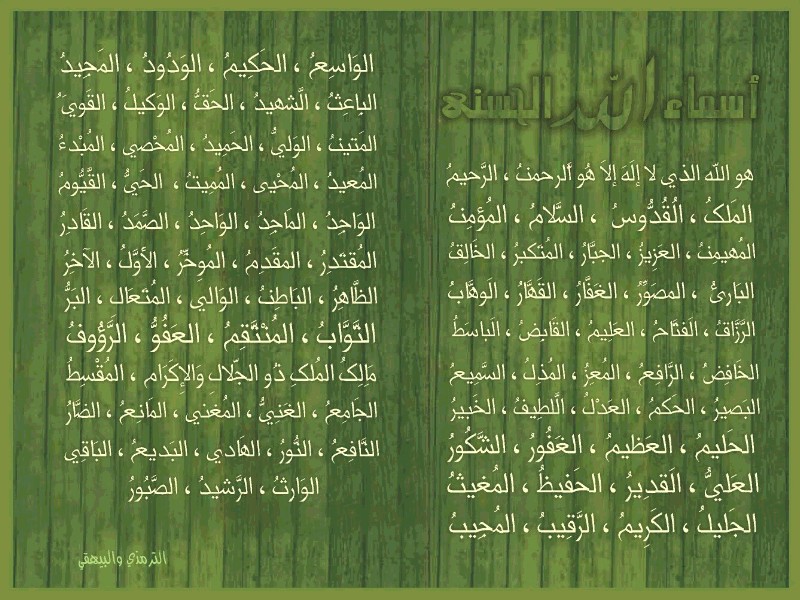 أسماء الله الحسنى
هو الله الذي لا إله إلا هو الرحمنُ ، الرَّحيمُ
المَلكُ ، القُدُّوسُ ، السَّلامُ ، المُؤمِنُ
المُهيمِنُ ، العَزِيزُ ، الجبَّارُ ، المُتَكبرُ ، الخَالقُ
البَارئُ ، المصَوِّرُ ، الغَفَّارُ ، القَهَّارُ ، الَوهَّابُ
الرَّزَّاقُ ، الَفتَّاحُ ، العَلِيمُ ، القَابِضُ ، الَباسَطُ
الخَافضُ ، الرَّافِعُ ، المُعِزُّ ، المُذِلُ ، السَّمِيعُ
البَصيرُ ، الحَكمُ ، العَدْلُ ، الَّلطِيفُ ، الخَبيرُ
الحَليمُ ، العظيمُ ، الغفُورُ ، الشَّكُورُ
العَليُّ ، الَقديرُ ، الحَفيظُ ، المُغيثُ
الجَليلُ ، الكَرِيمُ ، الرَّقِيبُ ، المُجِيبُ
الوَاسِعُ ، الحَكِيمُ ، الوَدُودُ ، المَجِيدُ
الباعِثُ ، الَّشهيدُ ، الحَقُّ ، الوَكيلُ ، القَويُ
المَتينُ ، الوَليُّ ، الحَمِيدُ ، المُحْصي ، المُبْدءُ
المُعيدُ ، المُحْيى ، المُمِيتُ ، الحَيُّ ، القَّيُّومُ
الوَاجِدُ ، المَاجِدُ ، الوَاحِدُ ، الصَّمَدُ ، القَادِرُ
المُقتَدِرُ ، المقَدِمُ ، المُوخِّرُ ، الأوَّلُ ، الآخِرُ
الظَّاهِرُ ، البَاطِنُ ، الوَالي ، المُتَعَال ، البَرُّ
التَّوَّابُ ، المُنْتَّقِمُ ، العفُوُّ ، الرَّؤُوفُ
مَالِكُ المُلكِ ذُو الجّلال وَالإكرَام ، المُقْسِطُ
الجَامِعُ ، الغَنِيُّ ، المُغَني ، المَانِعُ ، الضَّارُ
النَّافِعُ ، النُّورُ ، الهَادي ، البَديعُ ، البَاقِي
الوَارثُ ، الرَّشيدُ ، الصَّبُورُ
الترمذي والبيهقي